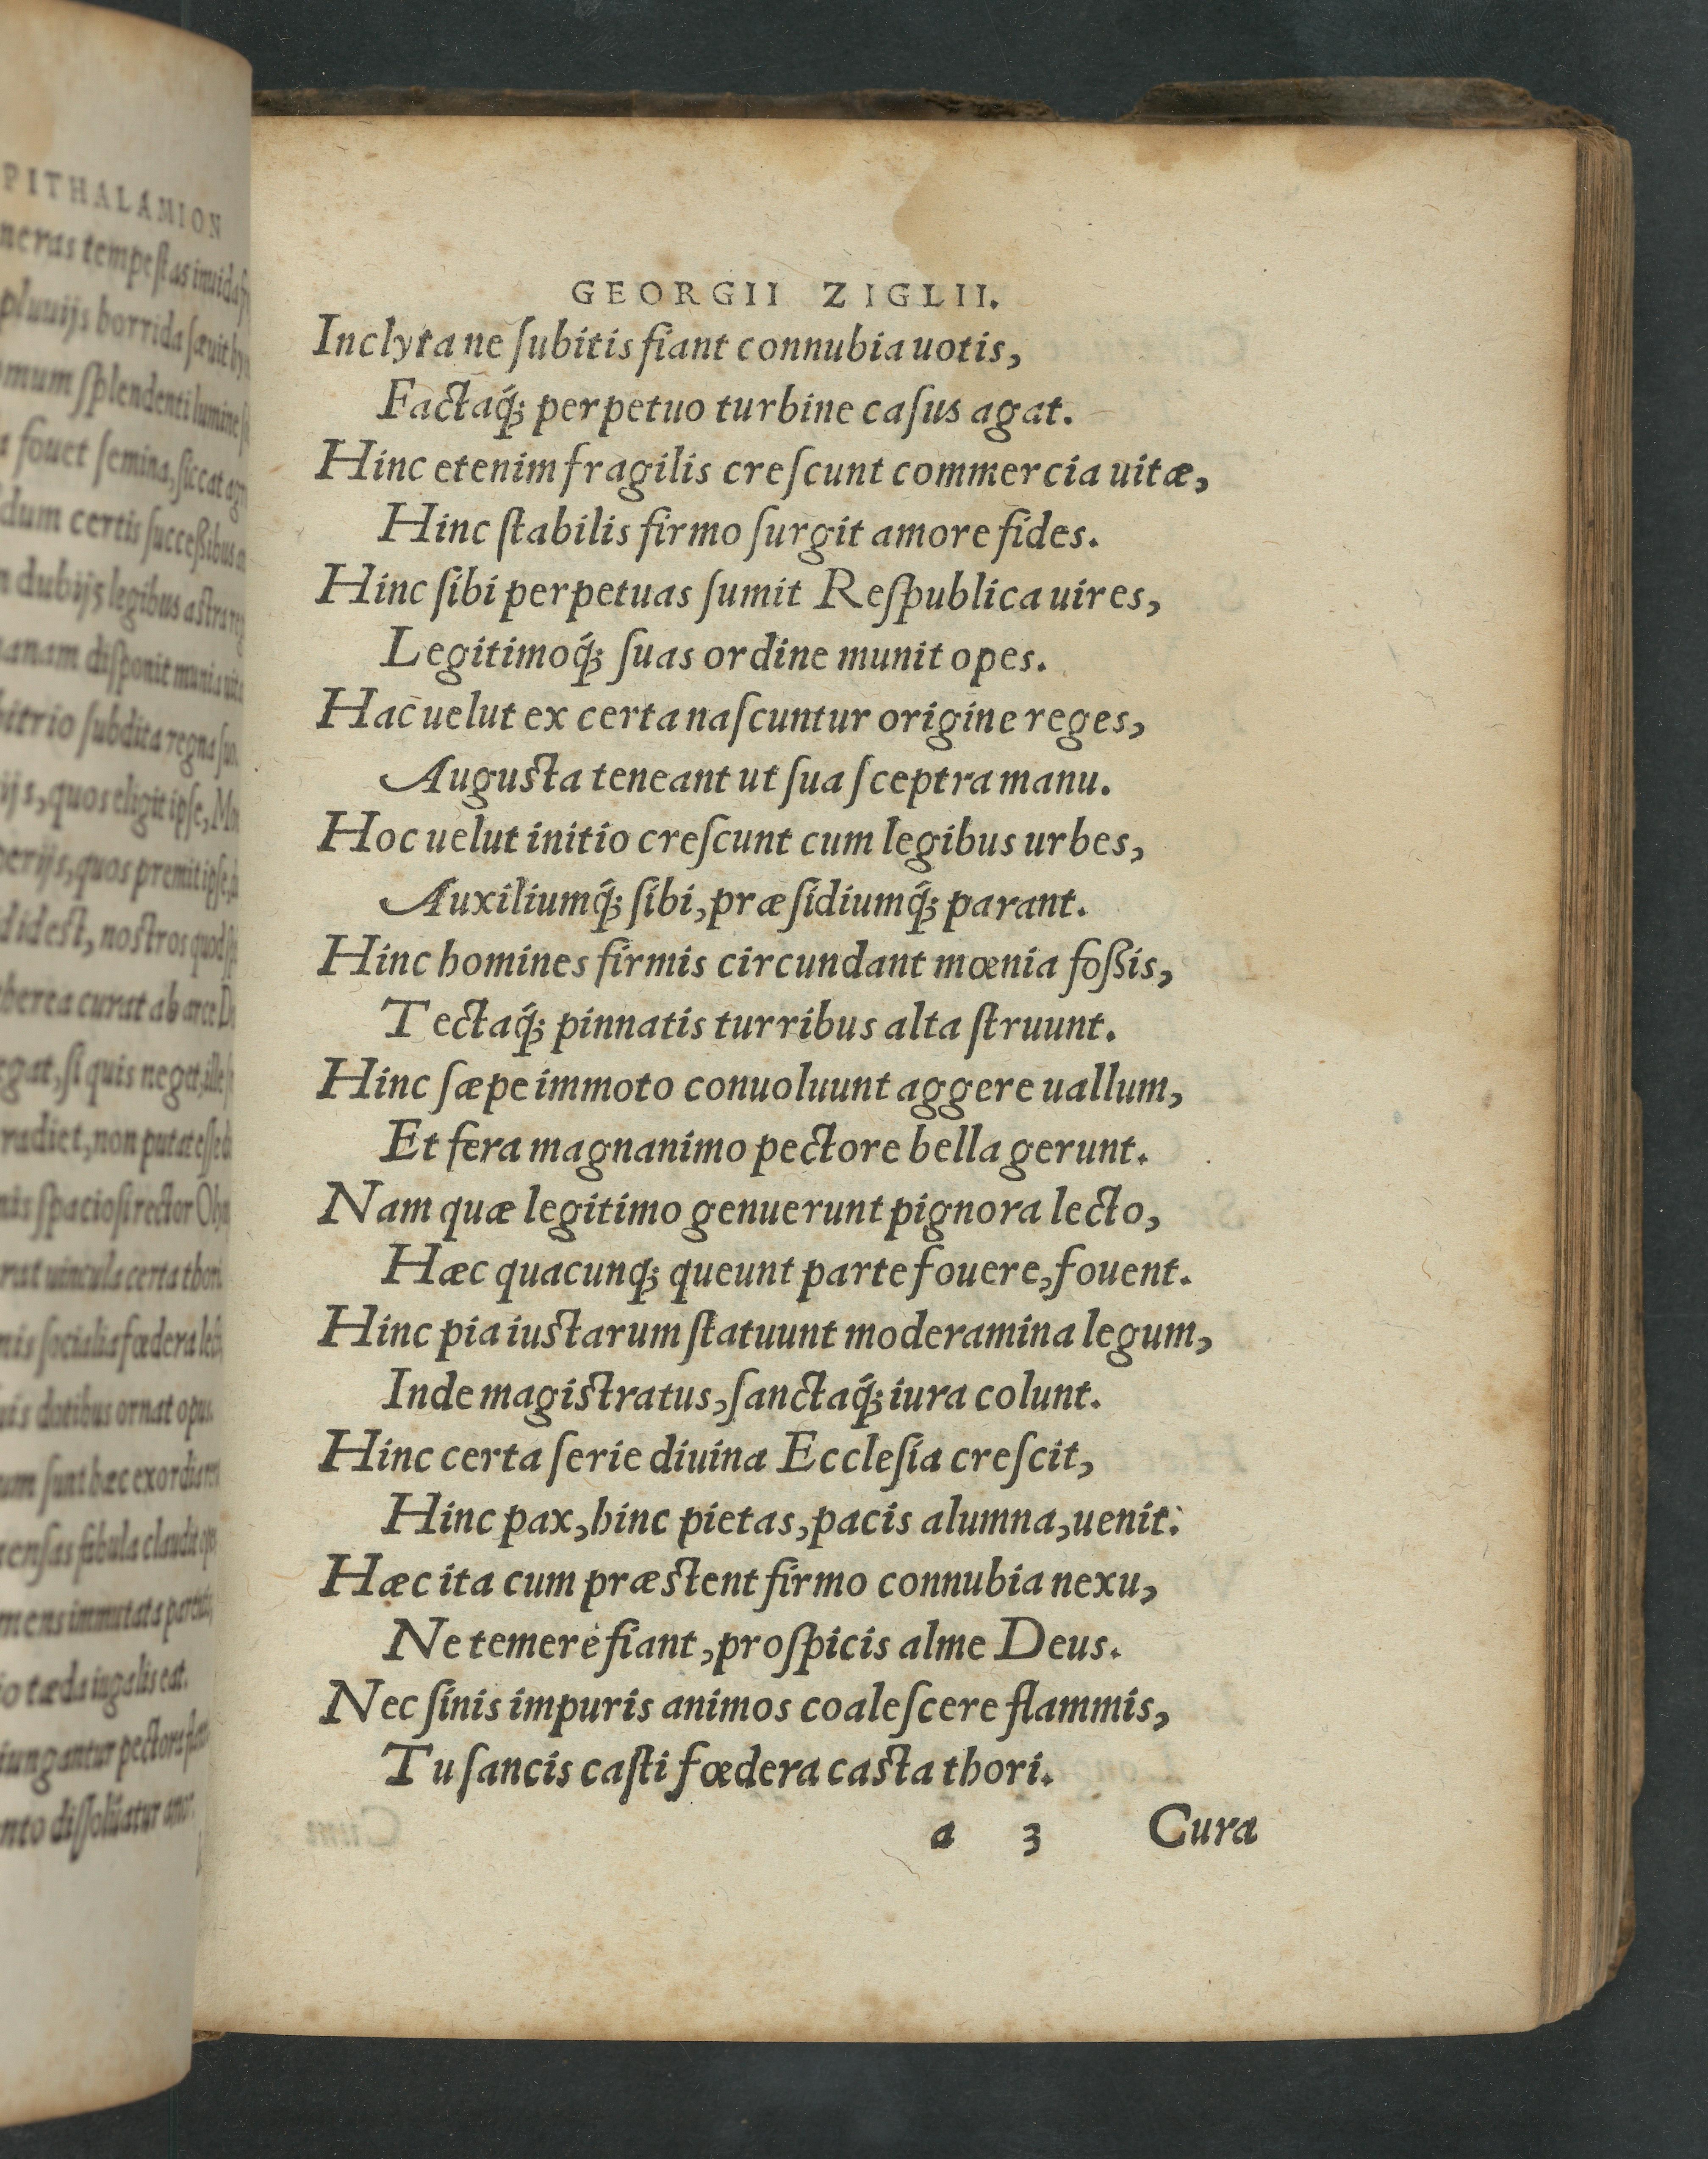 PITHALAMION
tempestas inuida
pluuijs horrida sæuit
splendenti lumine
fouet semina, siccat
certis successibus
dubijs legibus astra
disponit munia
subdita regna
quos eligit ipse,
quos premit ipse,
nostros quod
curat ab arce
si quis neget, ille
radiet, non putat esse
spaciosi rector
uincula certa thori
socialia fœdera
dotibus ornat opus.
sunt hæc exordia
fabula claudit
mens immutata
tæda iugalis eat.
iungantur pectora
dissoluatur amor.
GEORGII ZIGLII.
Inclyta ne ſubitis fiant connubia uotis,
Factaq́; perpetuo turbine caſus agat.
Hinc etenim fragilis creſcunt commercia uitæ,
Hinc ſtabilis firmo ſurgit amore fides.
Hinc ſibi perpetuas ſumit Reſpublica uires,
Legitimoq́; ſuas ordine munit opes.
Hac uelut ex certa naſcuntur origine reges,
Auguſta teneant ut ſua ſceptra manu.
Hoc uelut initio creſcunt cum legibus urbes,
Auxiliumq́; ſibi, præſidiumq́; parant.
Hinc homines firmis circundant mœnia foßis,
Tectaq́; pinnatis turribus alta ſtruunt.
Hinc ſæpe immoto conuoluunt aggere uallum,
Et fera magnanimo pectore bella gerunt.
Nam quæ legitimo genuerunt pignora lecto,
Hæc quacunq; queunt parte fouere, fouent.
Hinc pia iuſtarum ſtatuunt moderamina legum,
Inde magiſtratus, ſanctaq́; iura colunt.
Hinc certa ſerie diuina Eccleſia creſcit,
Hinc pax, hinc pietas, pacis alumna, uenit.
Hæc ita cum præſtent firmo connubia nexu,
Ne temerè fiant, proſpicis alme Deus.
Nec ſinis impuris animos coaleſcere flammis,
Tu ſancis caſti fœdera caſta thori.
a 3 Cura